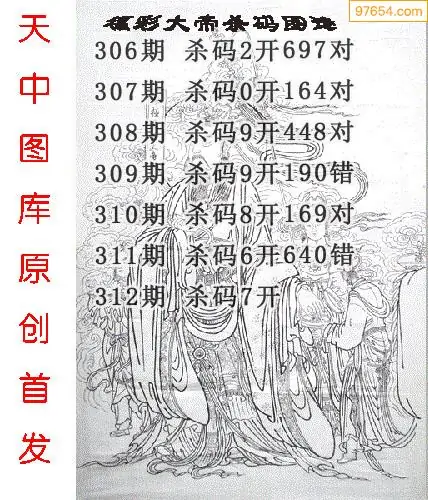 97654.com
福彩大帝杀码图迷
306期 杀码2开697对
307期 杀码0开164对
308期 杀码9开448对
309期 杀码9开190错
310期 杀码8开169对
311期 杀码6开640错
312期 杀码7开
天中图库原创首发